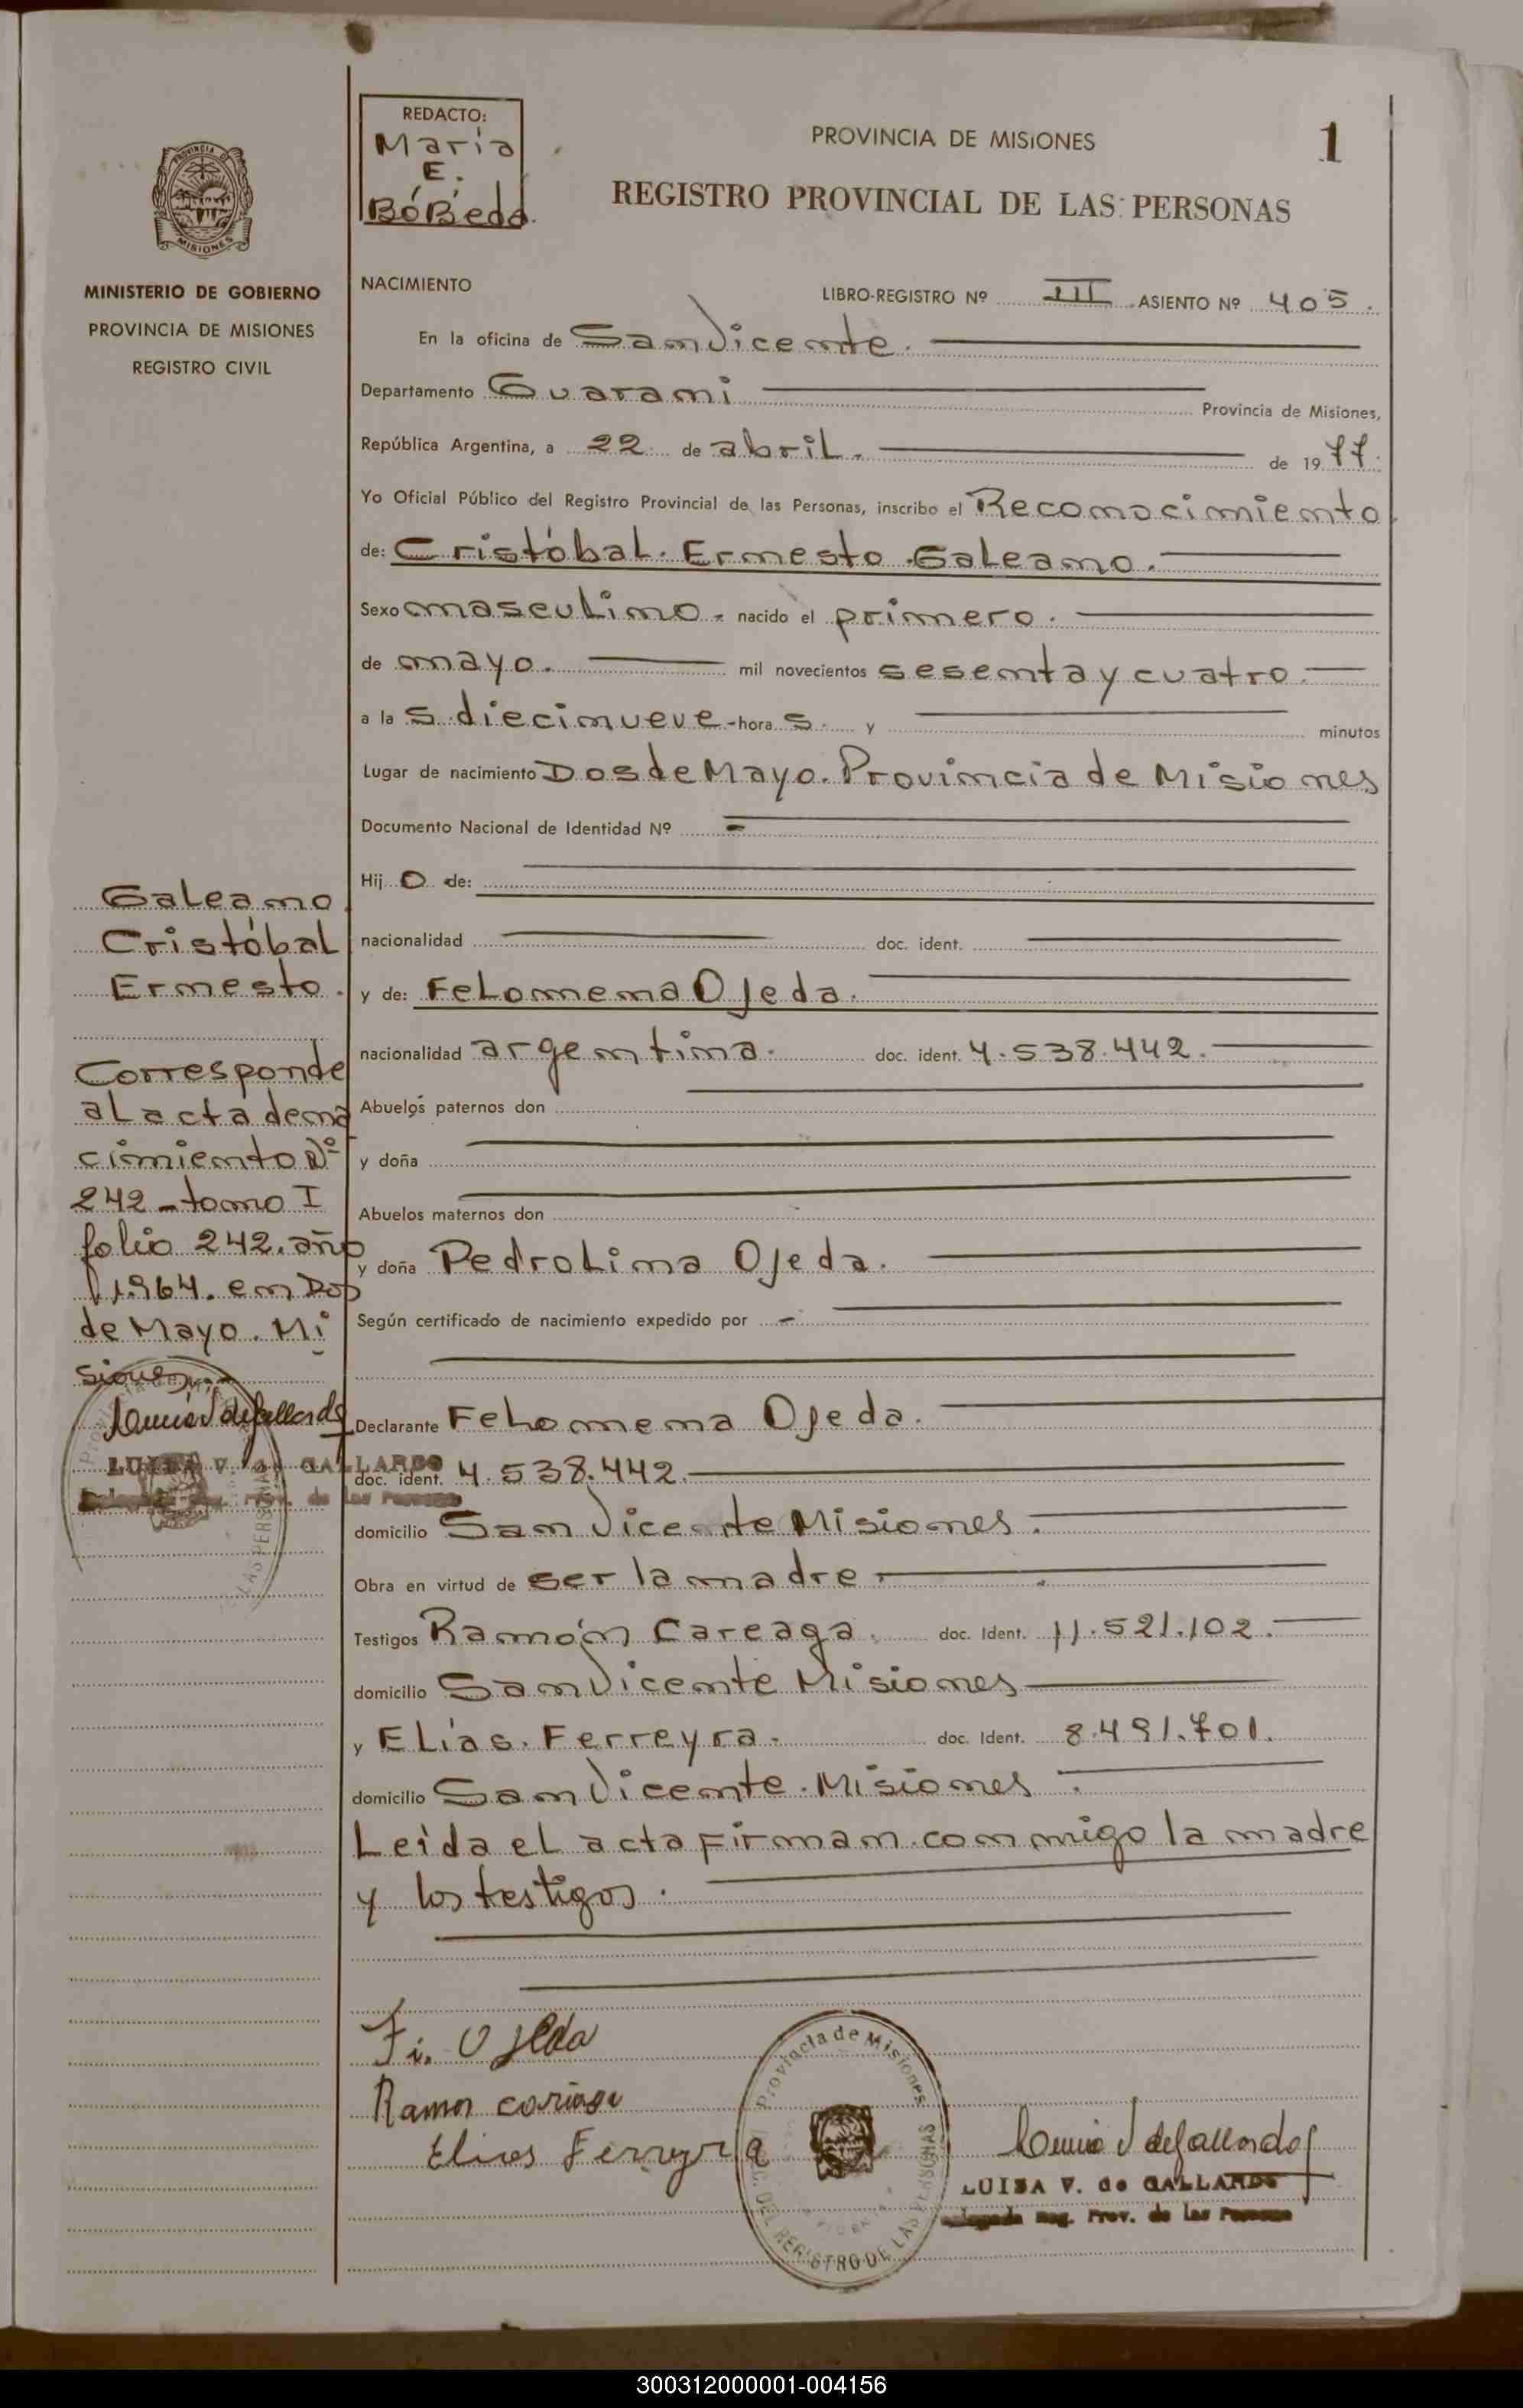 REDACTO:
María
E.
BóBeda.
PROVINCIA DE MISIONES
1
REGISTRO PROVINCIAL DE LAS PERSONAS
PROVINCIA
MISIONES
MINISTERIO DE GOBIERNO
PROVINCIA DE MISIONES
REGISTRO CIVIL
NACIMIENTO
LIBRO-REGISTRO Nº III ASIENTO Nº 405.
En la oficina de San Vicente.
Departamento Guaraní Provincia de Misiones,
República Argentina, a 22 de abril. de 1977.
Yo Oficial Público del Registro Provincial de las Personas, inscribo el Reconocimiento
de: Cristóbal. Ernesto Galeano.
Sexo masculino. nacido el primero.
de mayo. mil novecientos sesenta y cuatro.
a la s diecinueve-hora s. y minutos
Lugar de nacimiento Dos de Mayo. Provincia de Misiones
Documento Nacional de Identidad Nº -
Hij o de:
nacionalidad doc. ident.
y de: Felomena Ojeda.
nacionalidad argentina. doc. ident. 4.538.442.
Abuelos paternos don
y doña
Abuelos maternos don
y doña Pedrolina Ojeda.
Según certificado de nacimiento expedido por -
Declarante Felomena Ojeda.
doc. ident. 4.538.442.
domicilio San Vicente Misiones.
Obra en virtud de ser la madre.
Testigos Ramón Careaga. doc. Ident. 11.521.102.
domicilio San Vicente Misiones
y Elías. Ferreyra. doc. Ident. 8.491.701.
domicilio San Vicente. Misiones.
Leída el acta firman conmigo la madre
y los testigos.
Galeano
Cristóbal
Ernesto.
Corresponde
al acta de na
cimiento Nº
242-tomo I
folio 242. año
1.964. en Dos
de Mayo. Mi
siones
LUISA V. de GALLARDO
Reg. Prov. de las Personas
LAS PERSONAS
F. Ojeda
Ramon
Elias Ferreyra
Provincia de Misiones
DEL REGISTRO DE LAS PERSONAS
LUISA V. de GALLARDO
Delegada Reg. Prov. de las Personas
300312000001-004156